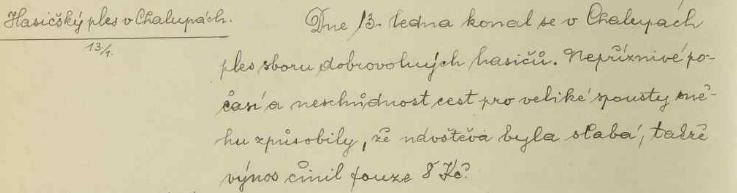 Hasičský ples v Chalupách.
13/1.
Dne 13. ledna konal se v Chalupách
ples sboru dobrovolných hasičů. Nepříznivé po-
časí a neschůdnost cest pro veliké spousty sně-
hu způsobily, že návštěva byla slabá, takže
výnos činil pouze 8 Kč.